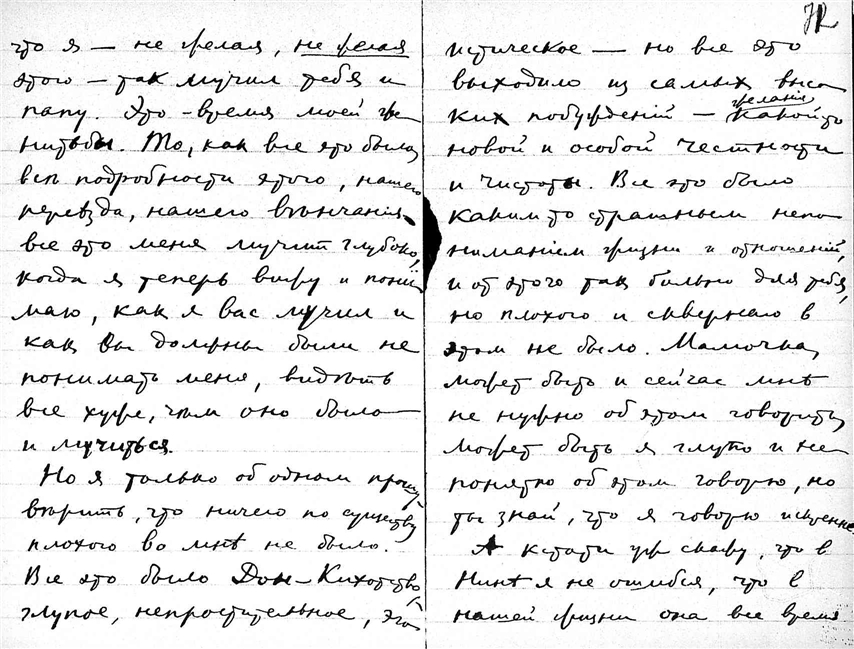 что я — не желая, не желая
этого — так мучил тебя и
папу. Это - время моей же
нитьбы. То, как все это было,
всѣ подробности этого, нашего
переѣзда, нашего вѣнчанія,
все это меня мучит глубоко,
когда я теперь вижу и пони
маю, как я вас мучил и
как вы должны были не
понимать меня, видѣть
все хуже, чѣм оно было
и мучиться.
Но я только об одном прошу
вѣрить, что ничего по существу
плохого во мнѣ не было.
Все это было Дон-Кихотство,
глупое, непростительное, эго-
72
истическое — но все это
выходило из самых высо
ких побуждений — желанія какой то
новой и особой честности
и чистоты. Все это было
каким то страшным непо
ниманіем жизни и отношений,
и от этого так больно для тебя,
но плохого и сквернаго в
этом не было. Мамочка,
может быть и сейчас мнѣ
не нужно об этом говорить,
может быть я глупо и не
понятно об этом говорю, но
ты знай, что я говорю искренно.
А кстати уж скажу, что в
Нинѣ я не ошибся, что в
нашей жизни она все время